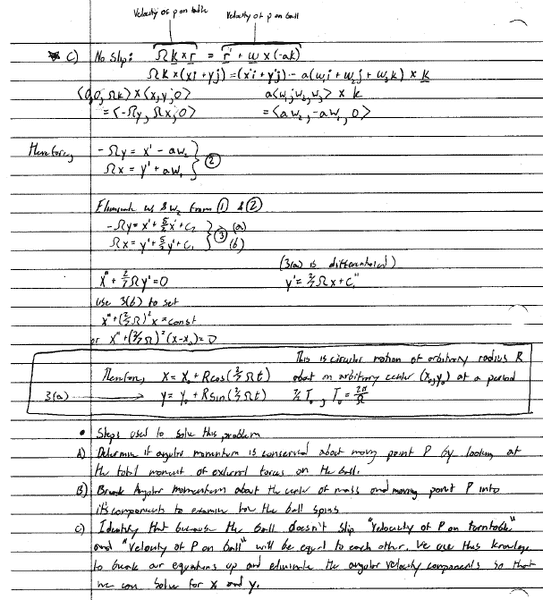 Velocity of P on table
Velocity of P on ball
* C) No Slip: Ω k × r = r' + ω × (-ak)
Ω k × (xi + yj) = (x'i + y'j) - a(ω₁i + ω₂j + ω₃k) × k
<0,0,Ωk> × <x,y,0> a<ω₁,ω₂,ω₃> × k
= <-Ωy, Ωx, 0> = <aω₂, -aω₁, 0>
Therefore, -Ωy = x' - aω₂
Ωx = y' + aω₁ } ②
Eliminate ω₁ & ω₂ from ① & ②
-Ωy = x' + 5/2 x' + C₂ (a)
Ωx = y' + 5/2 y' + C₁ } ③ (b)
(3(a) is differentiated)
x'' + 2/7 Ωy' = 0 y' = 2/7 Ωx + C₁''
use 3(b) to get
x'' + (2/7 Ω)² x = const
or x'' + (2/7 Ω)² (x - x₀) = 0
This is circular motion of arbitrary radius R
Therefore, x = x₀ + R cos(2/7 Ωt) about an arbitrary center (x₀, y₀) at a period
3(a) → y = y₀ + R sin(2/7 Ωt) 7/2 T₀, T₀ = 2π/Ω
• Steps used to solve this problem
A) Determine if angular momentum is conserved about moving point P by looking at
the total moment of external forces on the ball.
B) Break Angular momentum about the center of mass and moving point P into
its components to examine how the ball spins
C) Identify that because the ball doesn't slip "Velocity of P on turntable"
and "Velocity of P on ball" will be equal to each other. We use this knowledge
to break our equations up and eliminate the angular velocity components so that
we can solve for x and y.